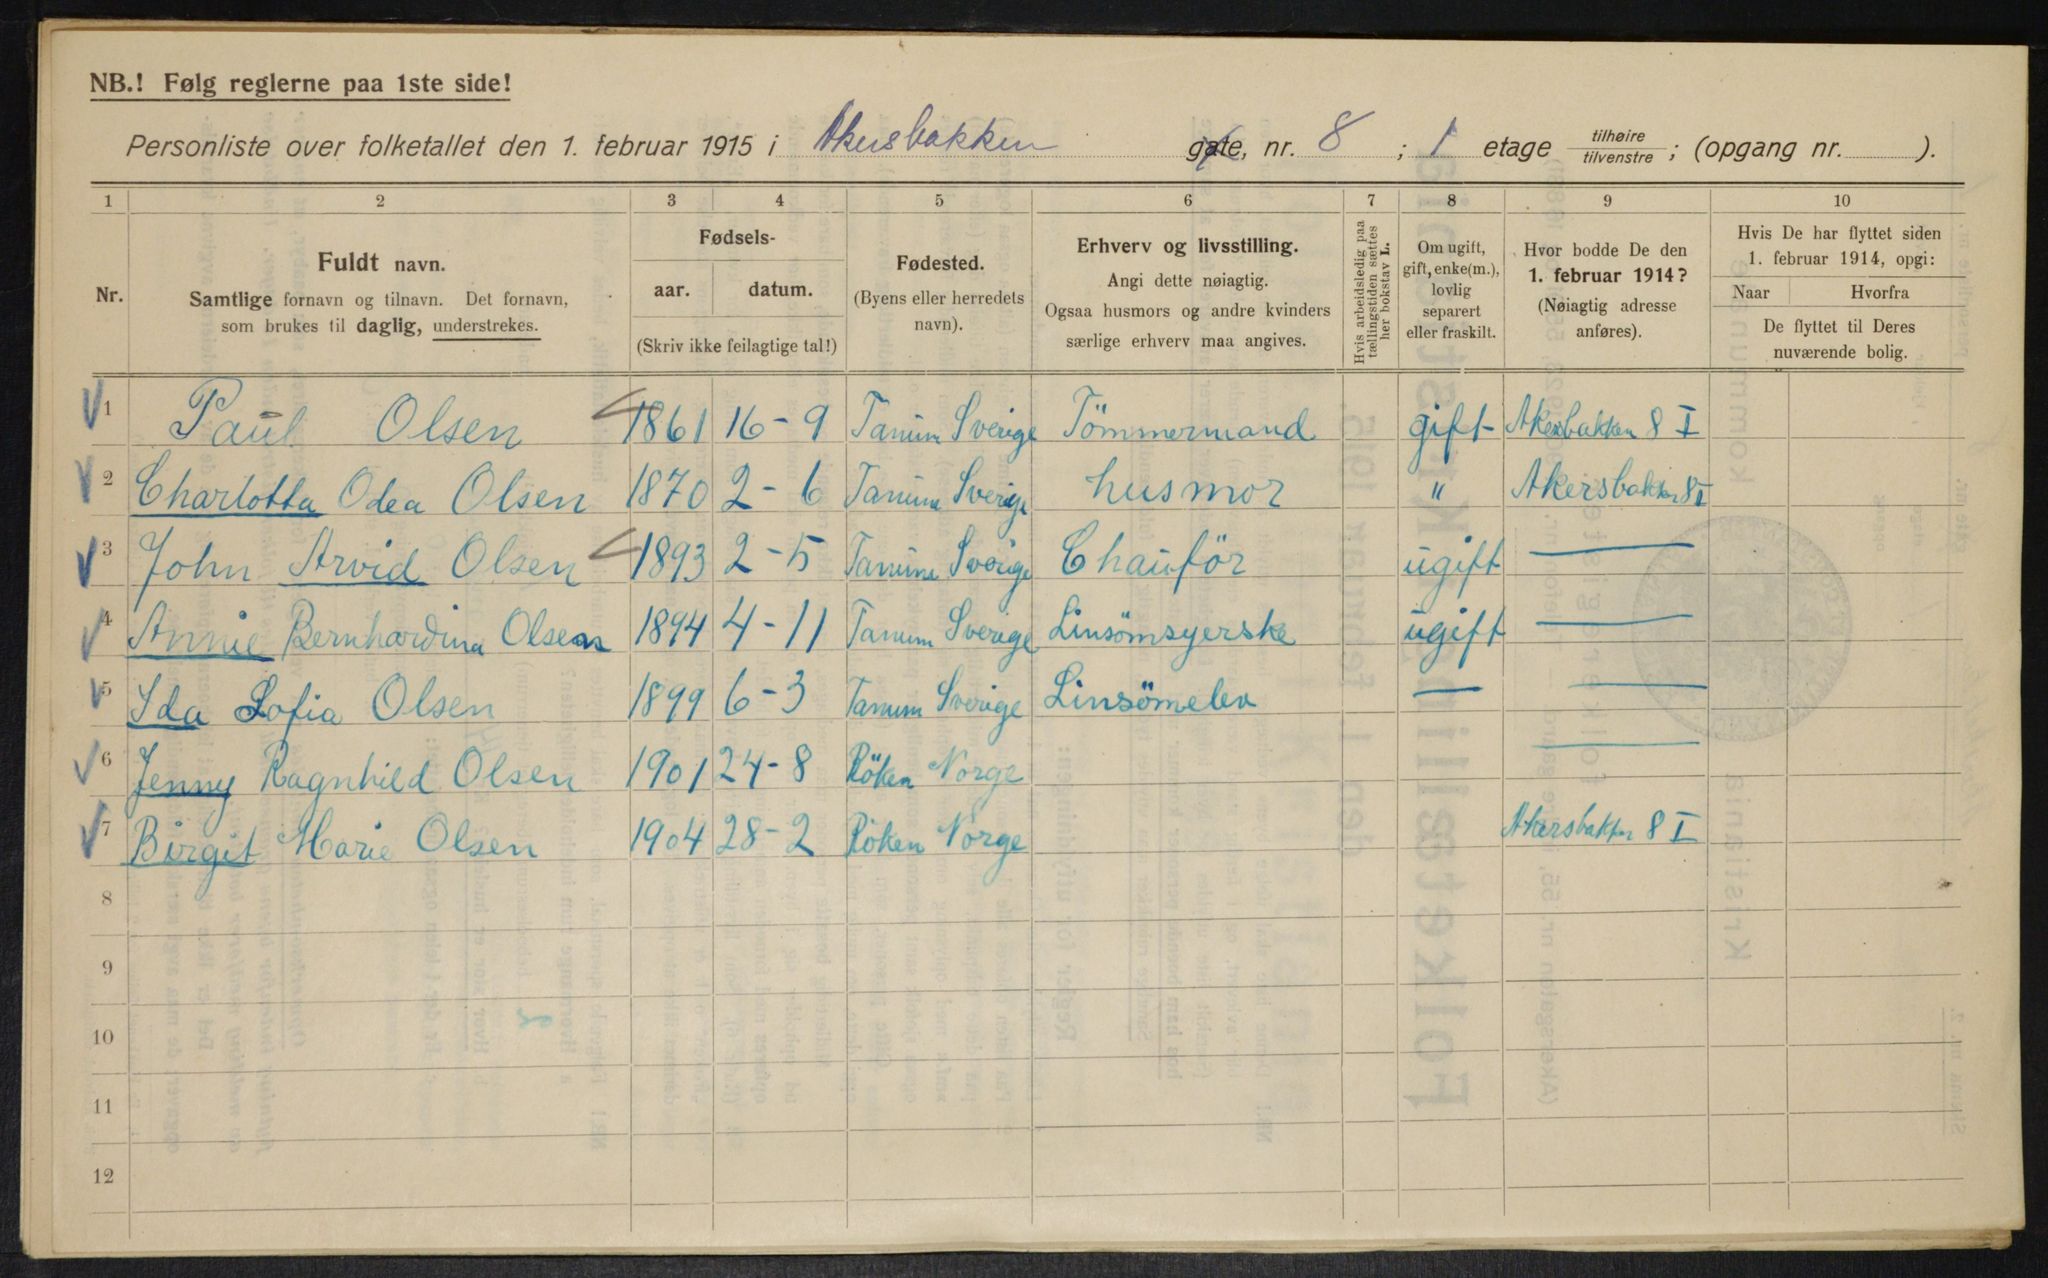 NB.! Følg reglerne paa 1ste side!
Personliste over folketallet den 1. februar 1915 i Akersbakken gate, nr. 8 ; 1 etage tilhøire/tilvenstre ; (opgang nr. ).
1 2 3 4 5 6 7 8 9 10
Nr.
Fuldt navn.
Samtlige fornavn og tilnavn. Det fornavn,
som brukes til daglig, understrekes.
Fødsels-
aar. datum.
(Skriv ikke feilagtige tal!)
Fødested.
(Byens eller herredets
navn).
Erhverv og livsstilling.
Angi dette nøiagtig.
Ogsaa husmors og andre kvinders
særlige erhverv maa angives.
Hvis arbeidsledig paa
tællingstiden sættes
her bokstav L.
Om ugift,
gift, enke(m.),
lovlig
separert
eller fraskilt.
Hvor bodde De den
1. februar 1914?
(Nøiagtig adresse
anføres).
Hvis De har flyttet siden
1. februar 1914, opgi:
Naar Hvorfra
De flyttet til Deres
nuværende bolig.
1 Paul Olsen 1861 16-9 Tanum Sverige Tömmermand gift Akersbakken 8 I
2 Charlotta Odea Olsen 1870 2-6 Tanum Sverige husmor " Akersbakken 8 I
3 John Arvid Olsen 1893 2-5 Tanum Sverige Chauför ugift —
4 Annie Bernhardina Olsen 1894 4-11 Tanum Sverige Linsömsyerske ugift —
5 Ida Sofia Olsen 1899 6-3 Tanum Sverige Linsömelev — —
6 Jenny Ragnhild Olsen 1901 24-8 Röken Norge —
7 Birgit Marie Olsen 1904 28-2 Röken Norge Akersbakken 8 I
8
9
10
11
12